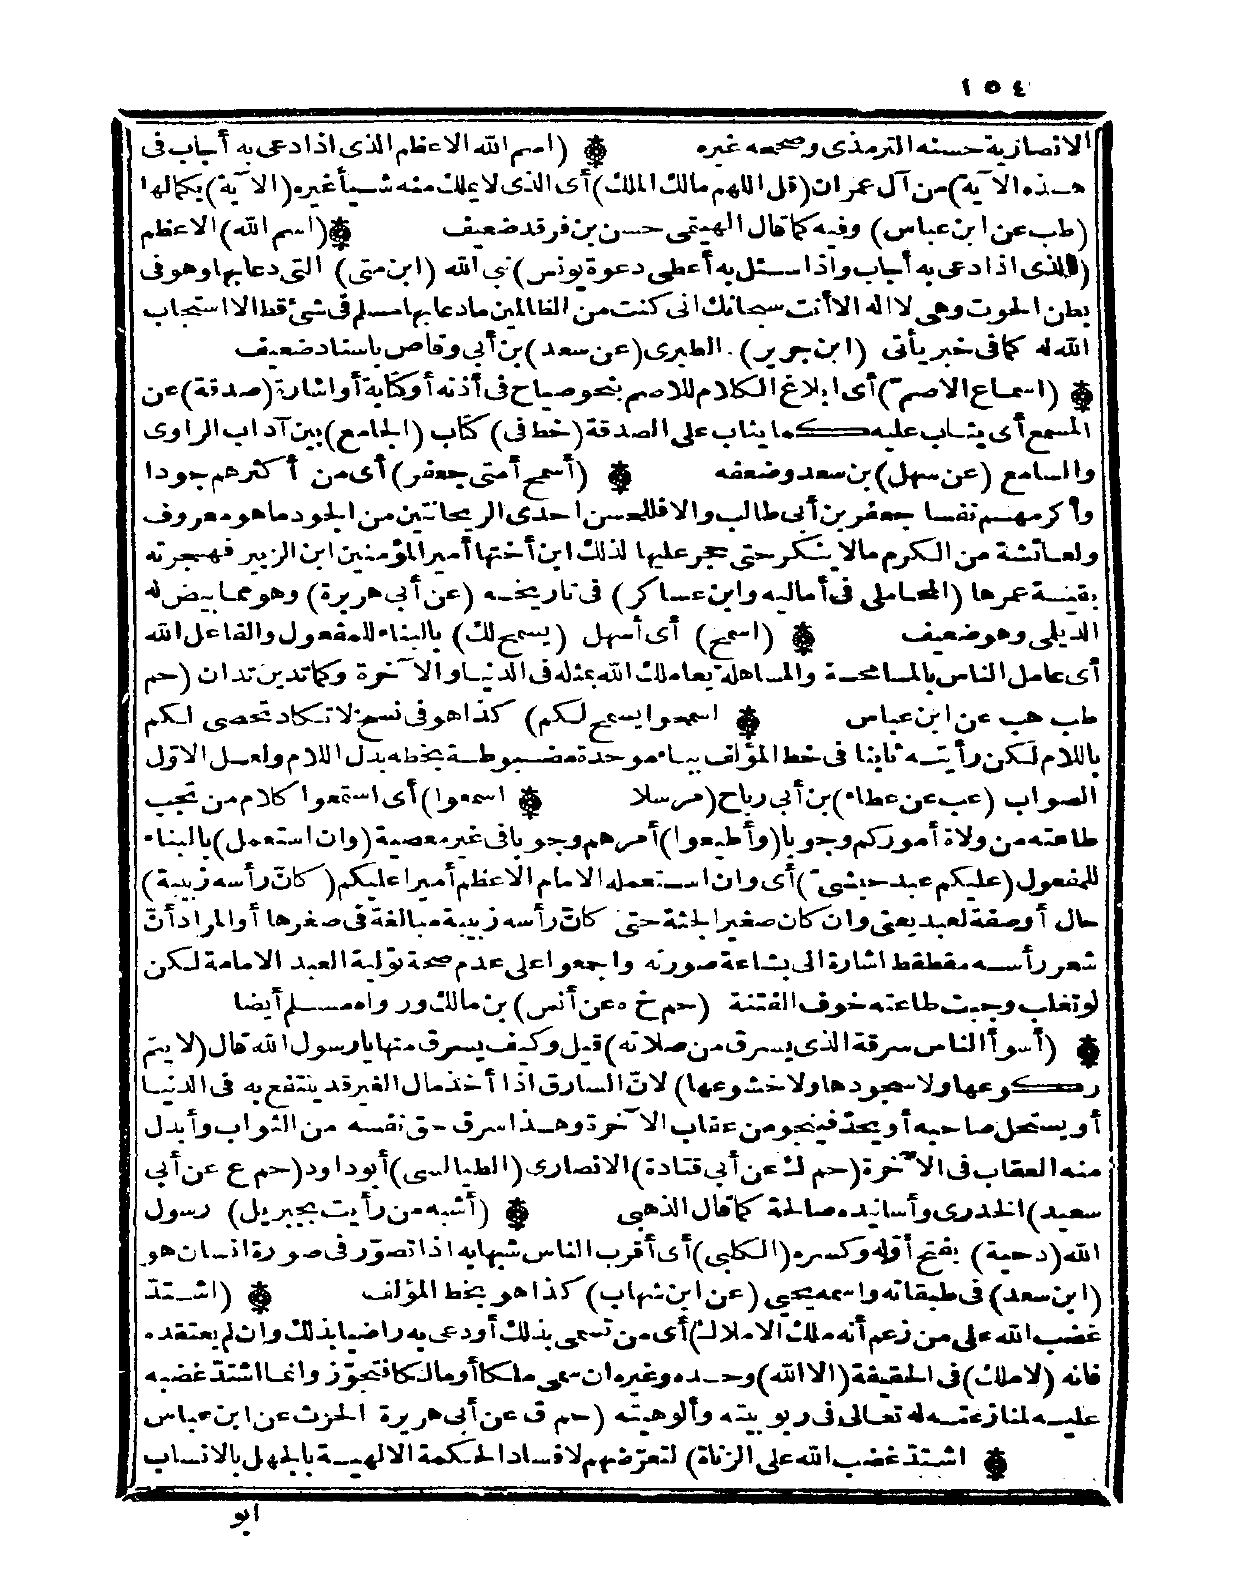 ١٥٤
الانصارية حسنه الترمذى وصححه غيره ۞ (اسم الله الاعظم الذى اذا دعى به أجاب فى
هذه الآية) من آل عمران (قل اللهم مالك الملك) أى الذى لا يملك منه شيأ غيره (الآية) بكمالها
(طب عن ابن عباس) وفيه كما قال الهيتمى حسن بن فرقد ضعيف ۞ (اسم الله) الاعظم
(الذى اذا دعى به أجاب واذا سئل به أعطى دعوة يونس) نبى الله (ابن متى) التى دعا بها وهو فى
بطن الحوت وهى لا اله الا أنت سبحانك انى كنت من الظالمين ما دعا بها مسلم فى شئ قط الا استجاب
الله له كما فى خبر يأتى (ابن جرير) الطبرى (عن سعد) بن أبى وقاص باسناد ضعيف
۞ (اسماع الاصم) أى ابلاغ الكلام للاصم بنحو صياح فى أذنه أو كتابة أو اشارة (صدقة) عن
المسمع أى يثاب عليه كما يثاب على الصدقة (خط فى) كتاب (الجامع) بين آداب الراوى
والسامع (عن سهل) بن سعد وضعفه ۞ (أسمح أمتى جعفر) أى من أكثرهم جودا
وأكرمهم نفسا جعفر بن أبى طالب والا فللحسن احدى الريحانتين من الجود ما هو معروف
ولعائشة من الكرم ما لا ينكر حتى حجر عليها لذلك ابن أختها أمير المؤمنين ابن الزبير فهجرته
بقية عمرها (المحاملى فى أماليه وابن عساكر) فى تاريخه (عن أبى هريرة) وهو مما بيض له
الديلى وهو ضعيف ۞ (اسمح) أى أسهل (يسمح لك) بالبناء للمفعول والفاعل الله
أى عامل الناس بالمسامحة والمساهلة يعاملك الله بمثله فى الدنيا والآخرة وكما تدين تدان (حم
طب هب عن ابن عباس ۞ اسمحوا يسمح لكم) كذا هو فى نسخ لا تكاد تحصى لكم
باللام لكن رأيته ثابتا فى خط المؤلف بباء موحدة مضبوطة بخطه بدل اللام ولعل الاوّل
الصواب (عب عن عطاء) بن أبى رباح (مرسلا ۞ اسمعوا) أى استمعوا كلام من تجب
طاعته من ولاة أموركم وجوبا (وأطيعوا) أمرهم وجوبا فى غير معصية (وان استعمل) بالبناء
للمفعول (عليكم عبد حبشى) أى وان استعمله الامام الاعظم أميرا عليكم (كانّ رأسه زبيبة)
حال أو صفة لعبد يعنى وان كان صغير الجثة حتى كانّ رأسه زبيبة مبالغة فى صغرها أو المراد أنّ
شعر رأسه مقطقط اشارة الى بشاعة صورته واجمعوا على عدم صحة تولية العبد الامامة لكن
لو تغلب وجبت طاعته خوف الفتنة (حم خ ه عن أنس) بن مالك ورواه مسلم أيضا
۞ (أسوأ الناس سرقة الذى يسرق من صلاته) قيل وكيف يسرق منها يا رسول الله قال (لا يتم
ركوعها ولا سجودها ولا خشوعها) لانّ السارق اذا أخذ مال الغير قد ينتفع به فى الدنيا
أو يستحل صاحبه أو يحدّ فينجو من عقاب الآخرة وهذا سرق حق نفسه من الثواب وأبدل
منه العقاب فى الآخرة (حم ك عن أبى قتادة) الانصارى (الطيالسى) أبو داود (حم ع عن أبى
سعيد) الخدرى وأسانيده صالحة كما قال الذهبى ۞ (أشبه من رأيت بجبريل) رسول
الله (دحية) بفتح أوّله وكسره (الكلبى) أى أقرب الناس شبها به اذا تصوّر فى صورة انسان هو
(ابن سعد) فى طبقاته واسمه يحيى (عن ابن شهاب) كذا هو بخط المؤلف ۞ (اشتدّ
غضب الله على من زعم أنه ملك الاملاك) أى من تسمى بذلك أو دعى به راضيا بذلك وان لم يعتقده
فانه (لا ملك) فى الحقيقة (الا الله) وحده وغيره ان سمى ملكا أو مالكا فتجوّز وانما اشتدّ غضبه
عليه لمنازعته له تعالى فى ربوبيته وألوهيته (حم ق عن أبى هريرة الحرث عن ابن عباس
۞ اشتدّ غضب الله على الزناة) لتعرّضهم لافساد الحكمة الالهية بالجهل بالانساب
ابو